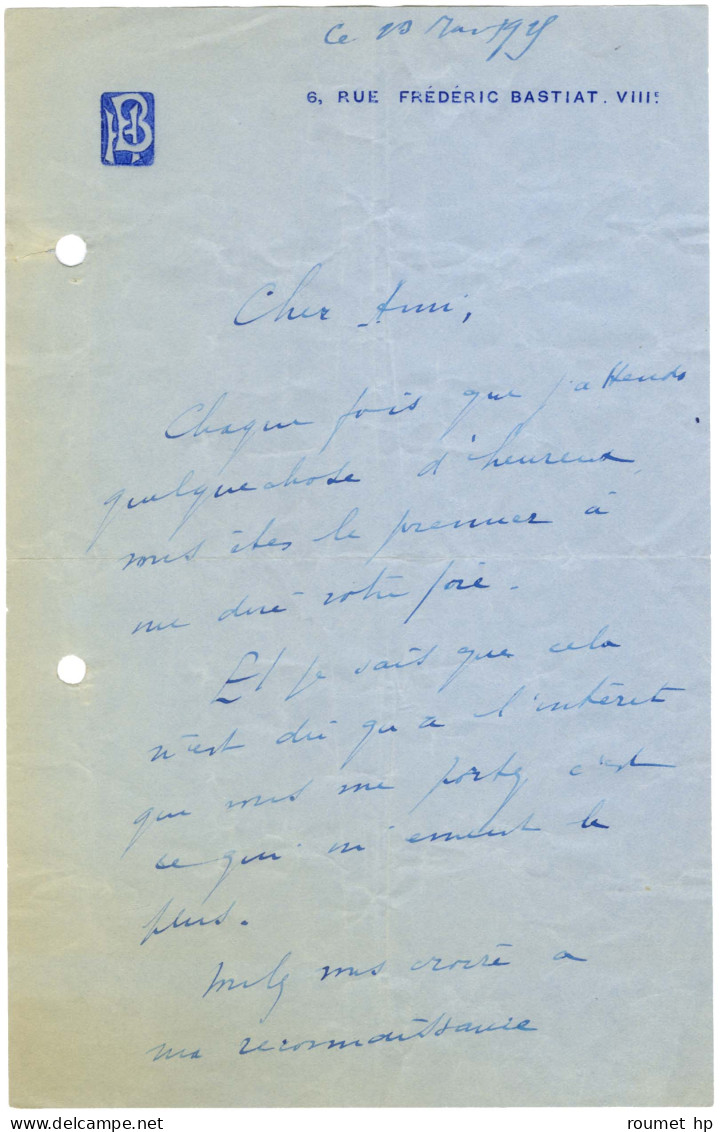 6, RUE FRÉDÉRIC BASTIAT. VIIIE
Cher Ami,
Chaque fois que j'attends
quelquechose d'heureux
vous êtes le premier à
me dire votre joie.
Et je sais que cela
n'est dû qu'a l'intéret
que vous me portez c'est
ce qui m'émeut le
plus.
vous croire a
ma reconnaissance
roumet hp